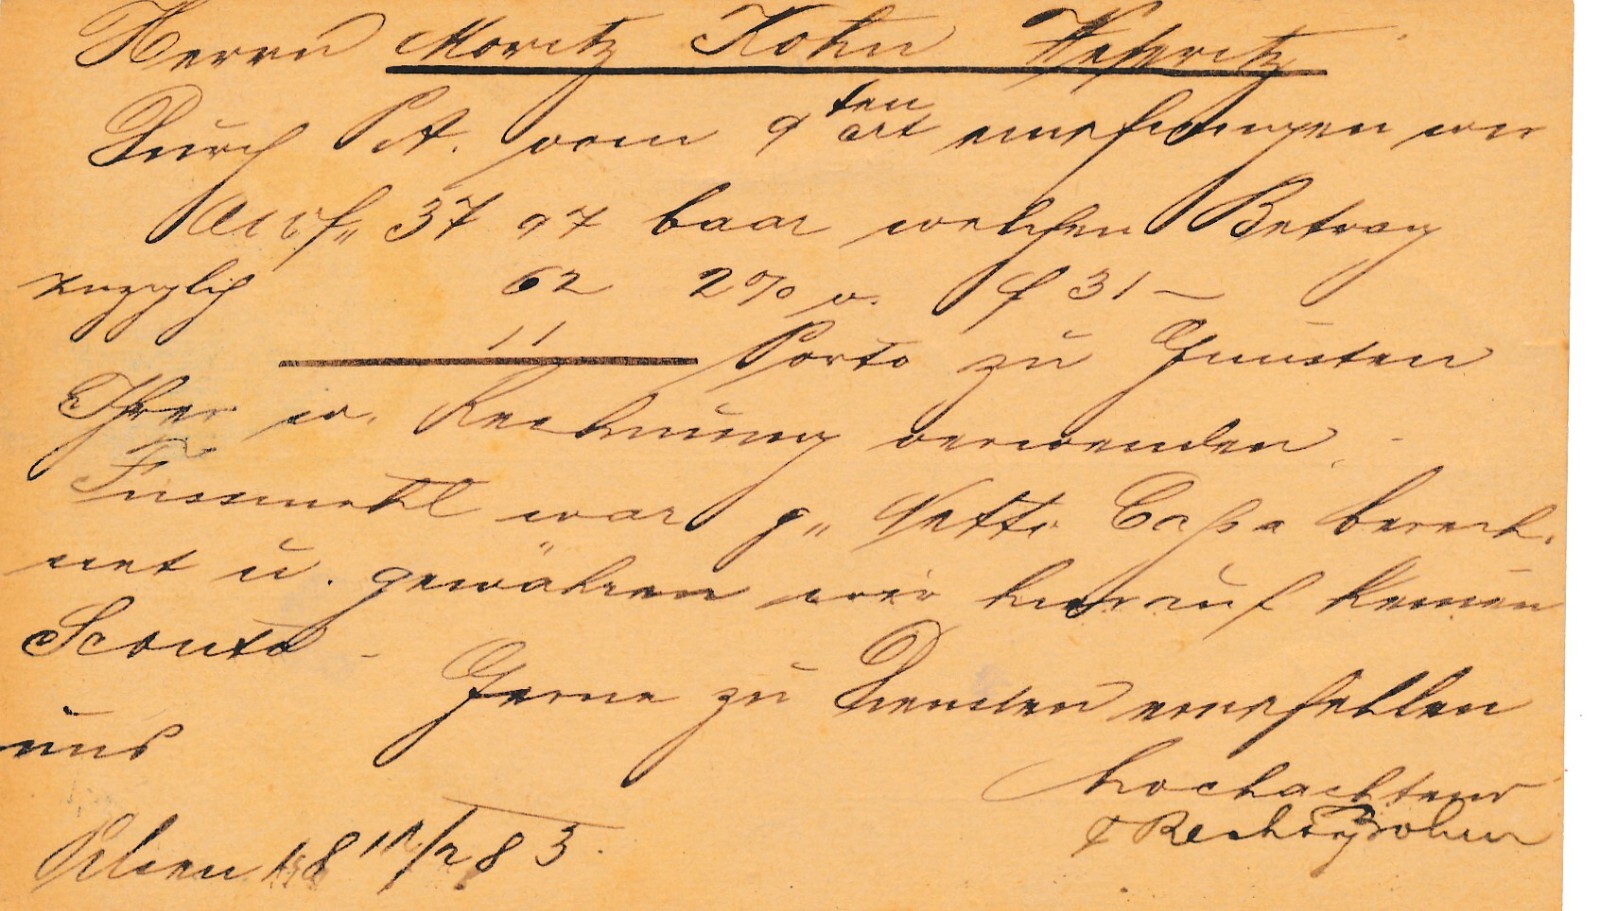 Herrn Moritz Kohn Weseritz
Durch P.A. vom 9ten crt empfingen wir
37 97 baar welchen Betrag
zuzüglich 62 2% v. f 31 —
11 Porto zu Gunsten
Ihrer w. Rechnung verwenden.
Fussmehl war p. Netto Cassa berech-
net u. gewähren wir hierauf keinen
Sconto - Gerne zu Diensten empfehlen
uns
hochachtend
Pilsen 18 /2 83.